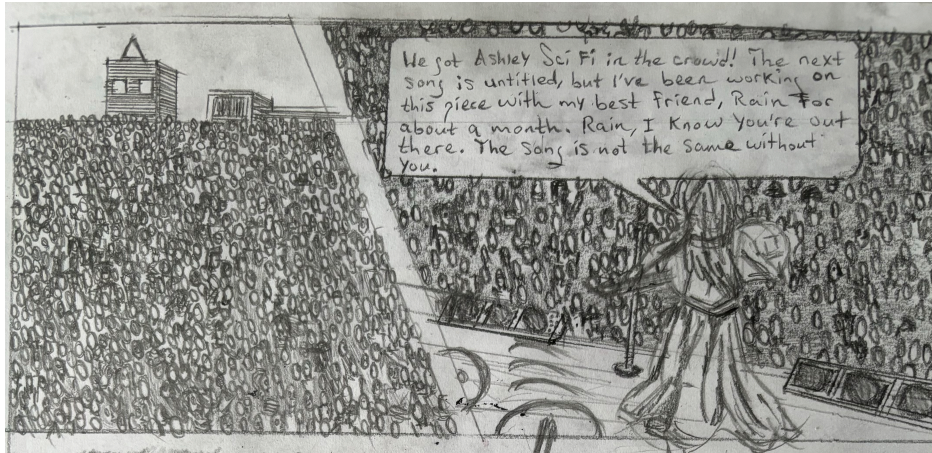 We got Ashley Sci Fi in the crowd! The next
song is untitled, but I've been working on
this piece with my best friend, Rain For
about a month. Rain, I know you're out
there. The song is not the same without
you.